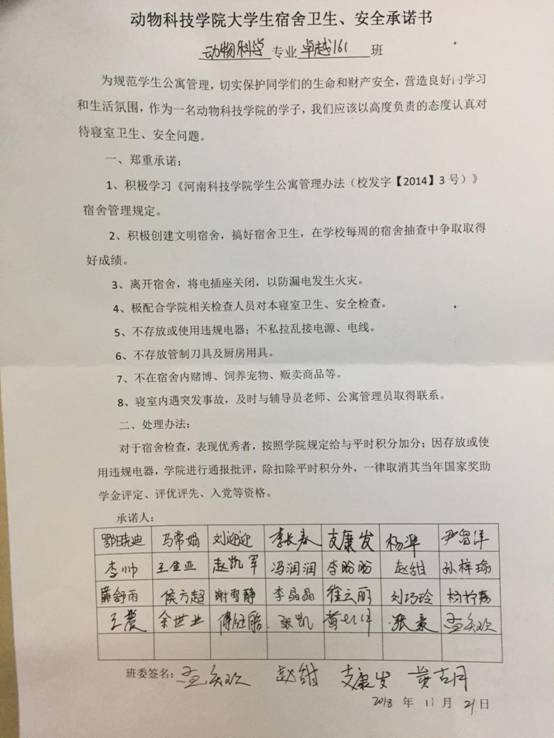 动物科技学院大学生宿舍卫生、安全承诺书
动物科学 专业 卓越161 班
为规范学生公寓管理，切实保护同学们的生命和财产安全，营造良好的学习
和生活氛围，作为一名动物科技学院的学子，我们应该以高度负责的态度认真对
待寝室卫生、安全问题。
一、郑重承诺：
1、积极学习《河南科技学院学生公寓管理办法（校发字【2014】3 号）》
宿舍管理规定。
2、积极创建文明宿舍，搞好宿舍卫生，在学校每周的宿舍抽查中争取取得
好成绩。
3、离开宿舍，将电插座关闭，以防漏电发生火灾。
4、极配合学院相关检查人员对本寝室卫生、安全检查。
5、不存放或使用违规电器；不私拉乱接电源、电线。
6、不存放管制刀具及厨房用具。
7、不在宿舍内赌博、饲养宠物、贩卖商品等。
8、寝室内遇突发事故，及时与辅导员老师、公寓管理员取得联系。
二、处理办法：
对于宿舍检查，表现优秀者，按照学院规定给与平时积分加分；因存放或使
用违规电器，学院进行通报批评，除扣除平时积分外，一律取消其当年国家奖助
学金评定、评优评先、入党等资格。
承诺人：
鄂瑞迪 马常娟 李长春 支康发 杨华
李帅 赵凯军 冯润润 李盼盼 赵甜 孙梓瑜
侯方超 谢雪静 李晶晶 徐云丽 刘巧玲
余世业 张凯
班委签名： 赵甜 支康发
2018 年 11 月 21 日